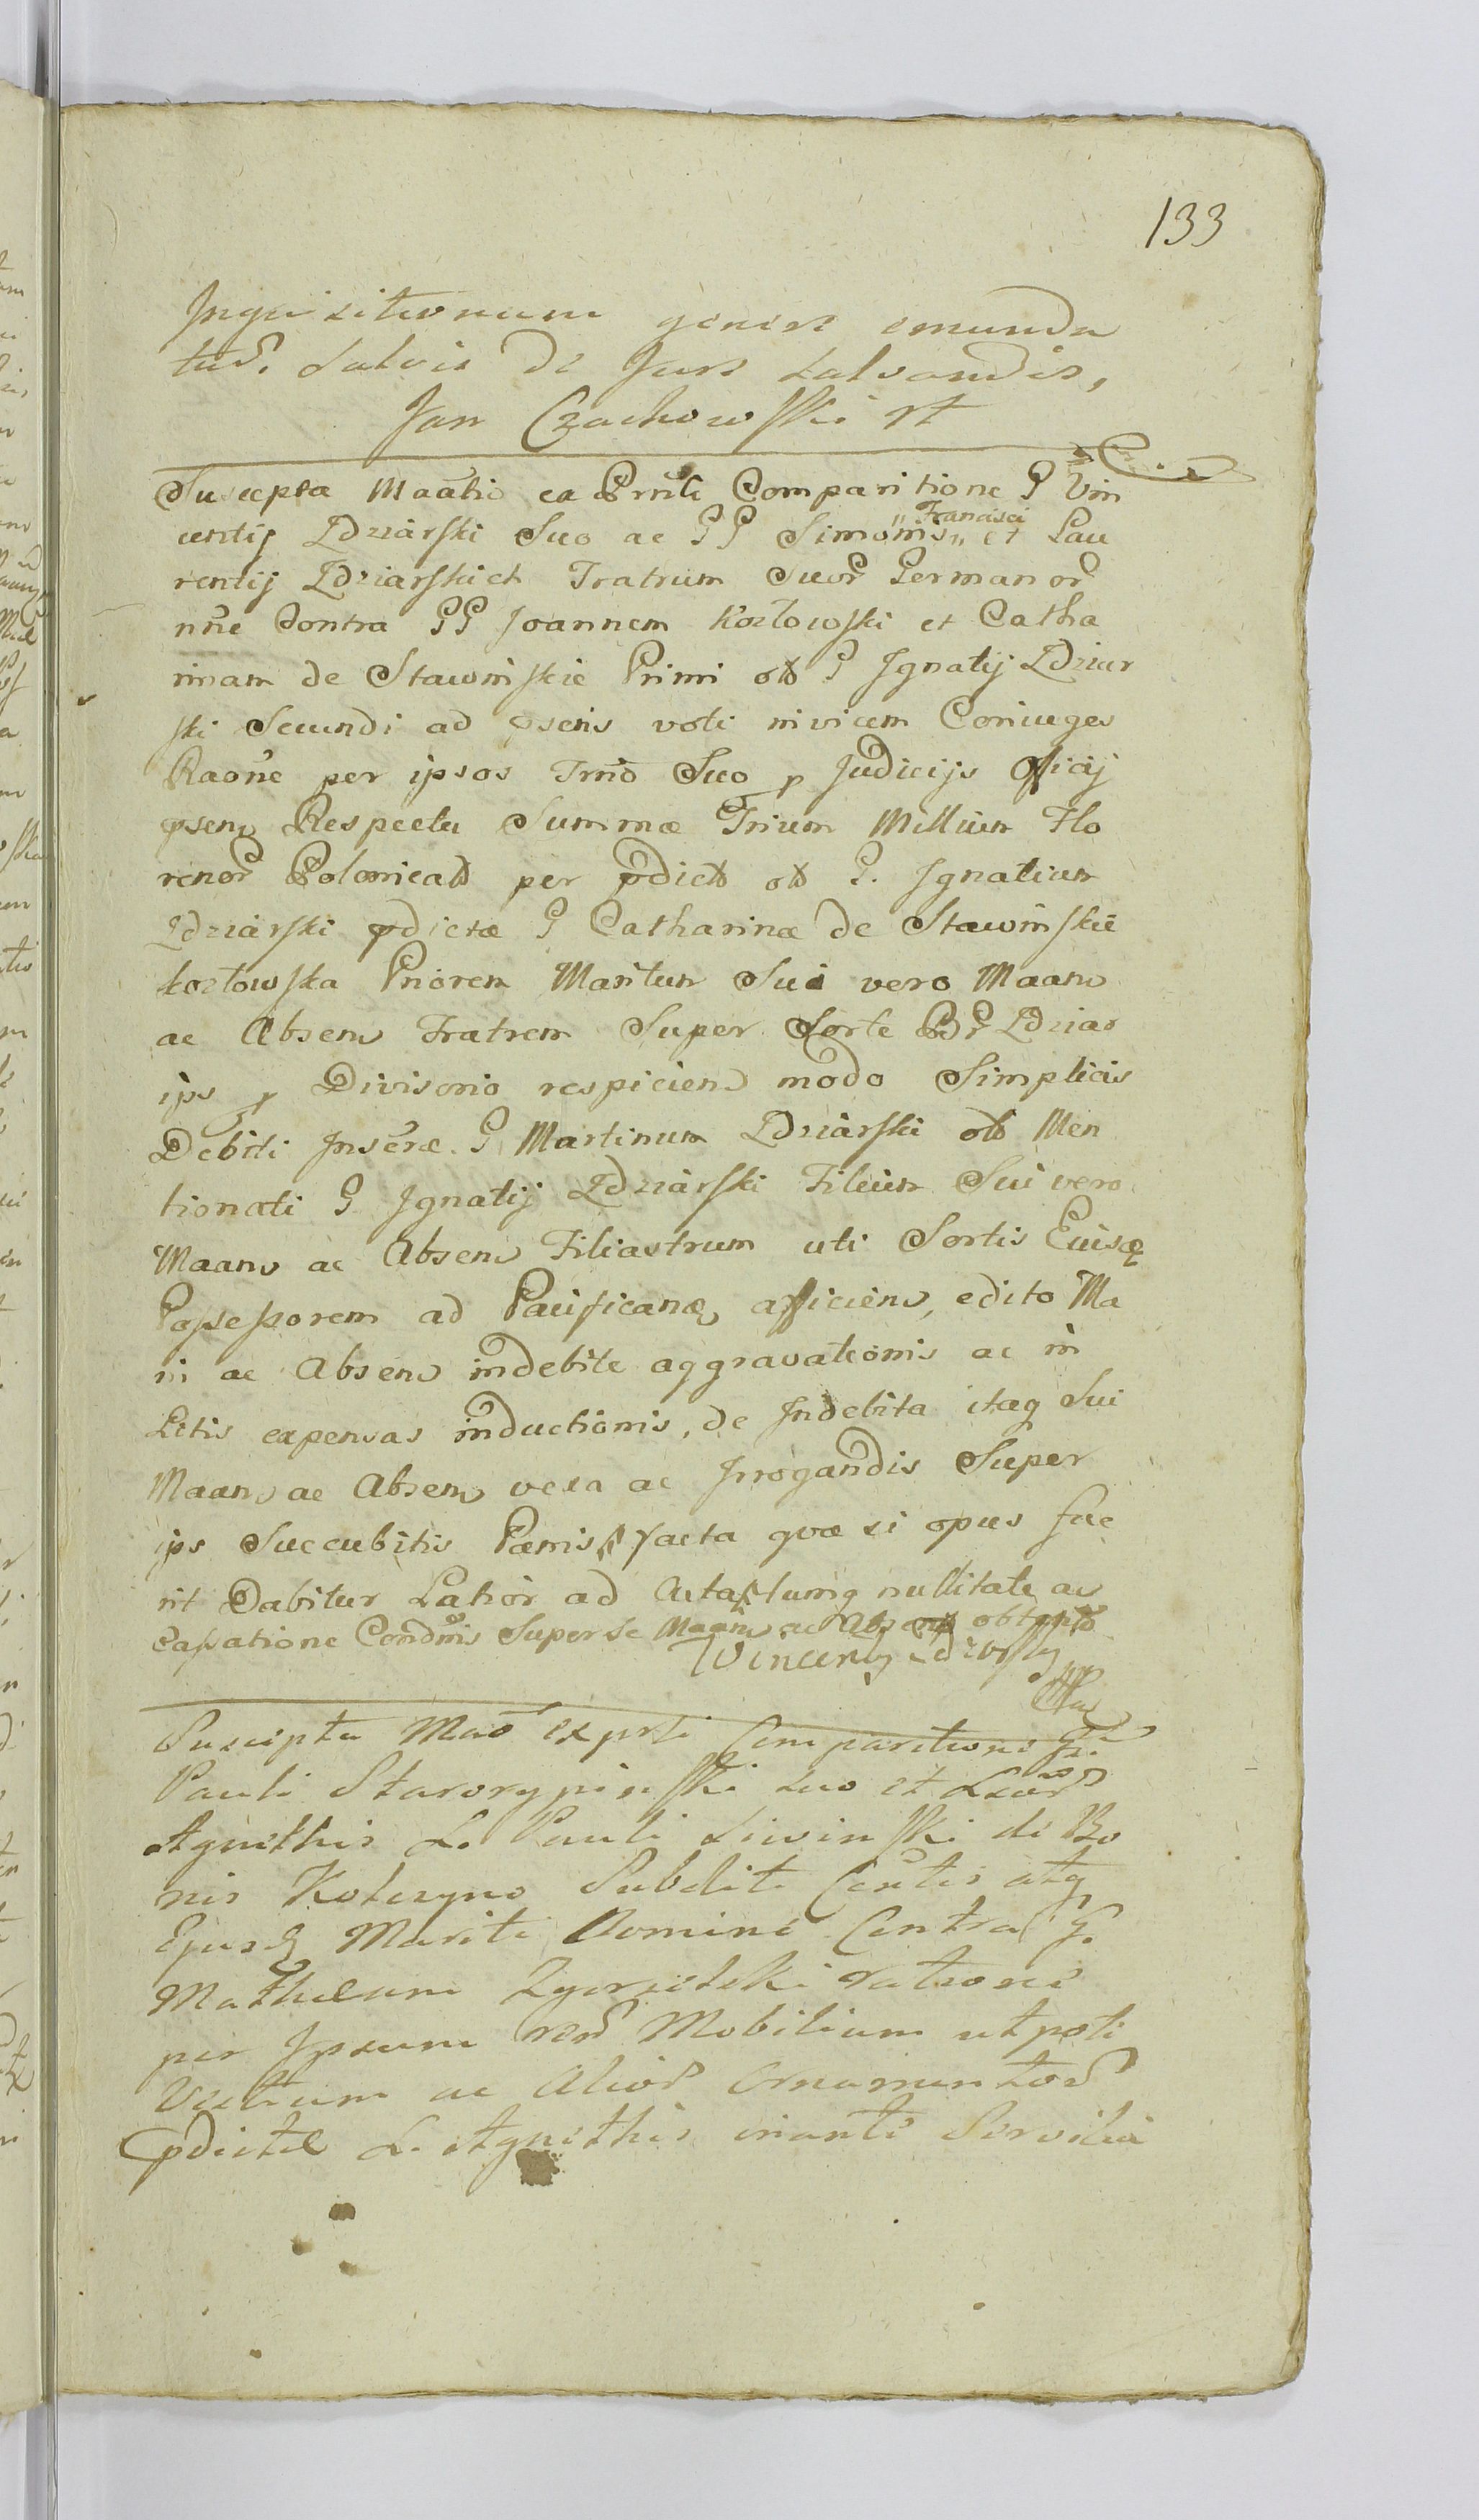 133
Inquisitionum genere emunda
tur. Salvis de Jure Salvandis,
Jan Czachowski
Suscepta Maãtio ex Prñti Comparitione G Vin
centij Zdziarski Suo ac GG Simonis „Francisci„ et Lau
rentij Zdziarskich Fratrum Suor Germanor
nñe Contra GG Joannem Kozłowski et Catha
rinam de Sławińskie Primi olt G Ignatij Zdziar
ski Secundi ad psens voti invicem Coniuges
Raõne per ipsos Trño Suo p Judicijs Officij
psens Respectu Summæ Trium Millium Flo
renor Polonicalt per pdict olt G. Ignatium
Zdziarski pdictæ G Catharinæ de Sławińskie
Kozłowska Priorem Maritum Sui vero Maans
ac Absens Fratrem Super Sorte GG Zdziar
ips p Divisorio respiciens modo Simplicis
Debiti Inseræ. G Martinum Zdziarski olt Men
tionati G Ignatij Zdziarski Filium Sui vero
Maans ac Absens Filiastrum uti Sortis Euisq
Possessorem ad Pacificanq afficiens, edito Ma
ni ac Absens indebite aggravationis ac in
Litis expensas inductionis, de Indebita itaq Sui
Maans ac Absens vexa ac Irrogandis Super
ips Succubitis Pœnis facta qvæ si opus fue
rit Dabitur Latior ad Acta tumq nullitate ac
Cassatione Condñis Super Se Maans ac Absens obtento
Wincenty Zdziarsky
Suscipta Mao ex prñti Comparitione G.
Pauli Starorypinski Suo et Laõr
Agnethis L. Pauli Liwinski de Bo
nis Kotczyno Subditi Cõntis atq
Ejusd Mariti Nomine Contra G.
Mathæum Zgorzelski ratione
per Ipsum rer Mobilium utpoti
Vestium ac Alior Ornamentor
pdictæ L. Agnethis Servilia